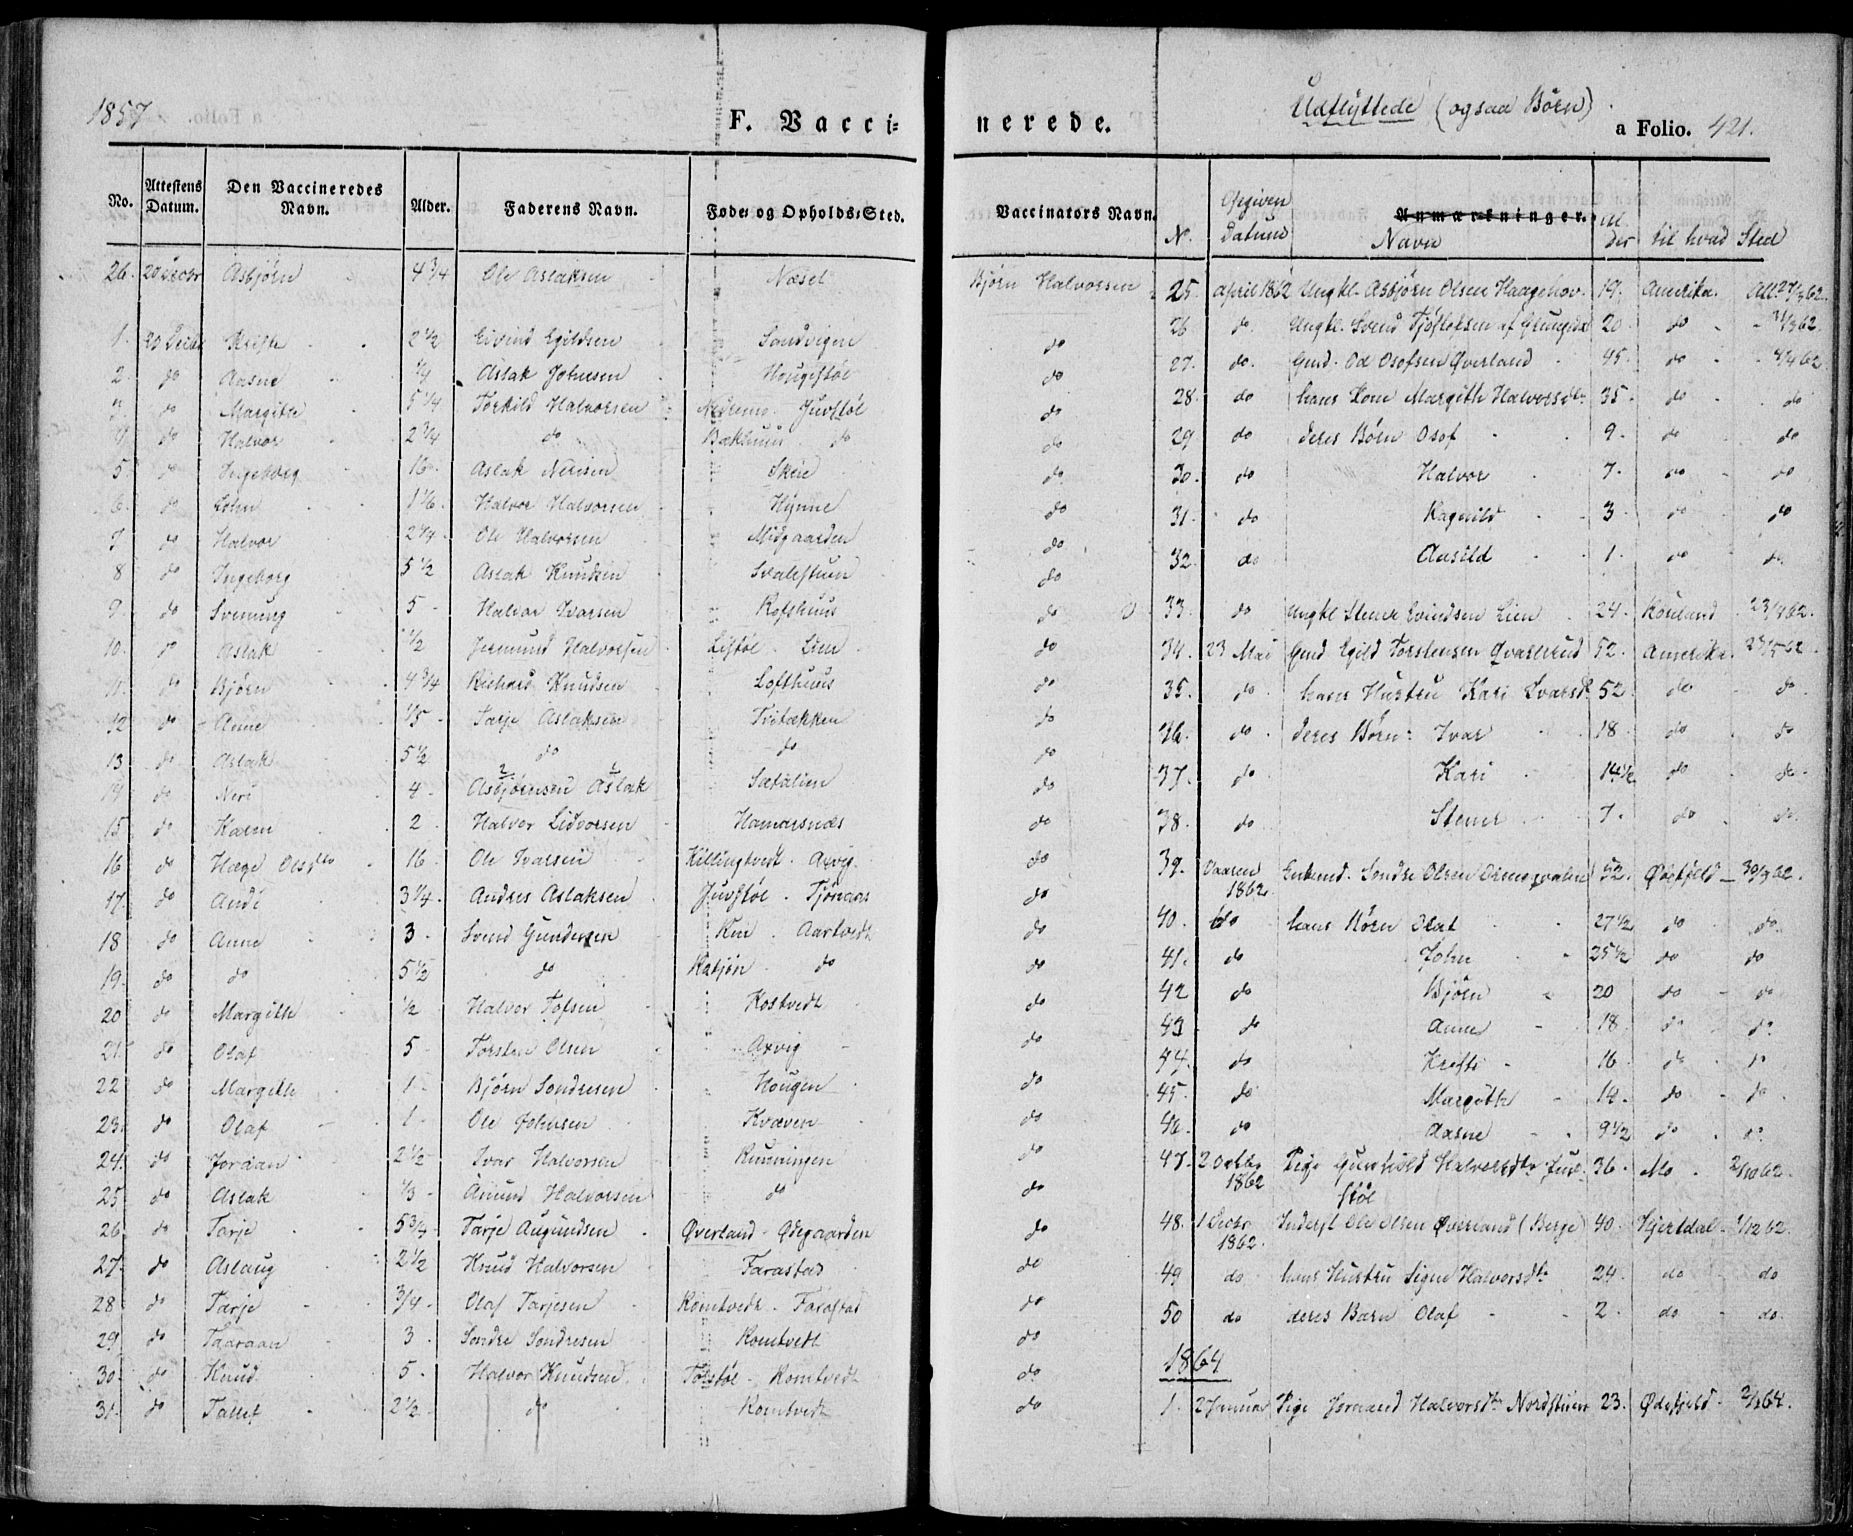 1857
F. Vacci=
No. Attestens Datum. Den Vaccineredes Navn. Alder. Faderens Navn. Føde= og Opholds=Sted.
26. 20 Decbr Asbjørn 4 3/4 Ole Aslaksen Næset
1. 29 Decbr 2 1/2 Eivind Egildsen Sandvigen
2. do Aasne 1/4 Aslak Johnsen Hougestøl
3. do Margithe 5 1/4 Torkild Halvorsen Juvstøl
4 do Halvor 2 3/4 do Bakhuus do
5 do Ingeborg 16 Aslak Nerisen Skeie
6. do John 1 1/6 Halvor Halvorsen Hynne
7 do Halvor 2 1/4 Ole Halvorsen Midgaarden
8 do Ingeborg 5 1/2 Aslak Knudsen Svalestuen
9. do Svenung 5 Halvor Ivarsen Rofshuus
10. do Aslak 1/2 Jermund Halvorsen Listøl Lien
11. do Bjørn 4 3/4 Richard Knudsen Lofthuus
12 do Anne 1/5 Tarje Aslaksen Tvitækken
13 do Aslak 5 1/2 do do
14 do Neri 4 Asbjørnsen Aslak Sætalien
15. do Karen 2 Halvor Lidvorsen Hamarsnæs
16 do Hæge Olsdtr 16 Ole Ivarsen Killingtvedt Axvig
17. do Andi 3 1/4 Andres Aslaksen Juvstøl Tjønaas
18 do Anne 3 Svend Gundersen Kin Aartvedt
19. do do 5 1/2 do Ratjøn do
20 do Margith 1/2 Halvor Tofsen Kostvedt
21. do Olaf 5 Torsten Olsen Axvig
22 do Margith 1 Bjørn Sondresen Hougen
23. do Olaf 1 Ole Johnsen Kvæven
24. do Joraan 2 1/2 Ivar Halvorsen Runningen
25 do Aslak 1/3 Amund Halvorsen do
26 do Tarje 5 3/4 Tarje Augundsen Øverland Ødegaarden
27. do Aslaug 2 1/2 Knud Halvorsen Farastad
28 do Tarje 3/4 Olaf Tarjesen Romtvedt Farastad
29 do Taaraan 3 Sondre Sondresen Romtvedt
30 do Knud 5 Halvor Knudsen Torstøl Romtvedt
31. do Tallef 2 1/2 do Romtvedt
Udflyttede (ogsaa Børn)
nerede. a Folio. 421.
Vaccinators Navn. N. Opgiven Datum Anmærkninger. Navn Alder til hvad Sted
Bjørn Halvorsen 25. April 1862 Ungkl. Asbjørn Olsen Haagehov 19. Amerika. Att. 27/3 62.
do 26 do. Ungkl. Svend 20 do 31/3 62.
do 27. do. Gmd. Od Osofsen Øverland 45. do 4/4 62
do 28. do hans Kone Margith Halvorsdtr 35. do do
do 29 do deres Børn Osof 9. do do
do 30. do Halvor 7. do do
do 31. do Ragnild 3 do do
do 32. do Aasild 1. do do
do 33 do Ungkl Stener Evindsen Lien 24. 62.
do 34. 23 Mai Gmd Egild Torstensen Qvastrud 52. Amerika. 23/5 62
do 35. do. hans Hustru Kari Ivarsdt 52 do do
do 36. do. deres Børn: Ivar 18. do do
do 37. do Kari 14 1/2 do do
do 38. do Stener 7. do do
do 39. Vaaren 1862 Enkmd. Sondre Olsen 52. Ødefjeld 30/3 62.
do 40. do hans Børn Olaf 27 1/2 do do
do 41. do John 25 1/2 do do
do 42 do Bjørn 20 do do
do 43 do Anne 18. do do
do 44. do Krefti 16 do do
do 45. do Margith 14. do do
do 46. do Aasne 9 1/2 do do
do 47. 2 Octbr 1862 Pige Gunhild Halvorsdtr Juvstøl 36. Mo 2/10 62.
do 48. 1 Decbr 1862. Inderst Ole Olsen Øverland (Berge) 40. Hjertdal 1/12 62.
do 49 do hans Hustru Signe Halvorsdtr 24. do do
do 50 do deres Barn Olaf 2. do do
do 1864
do 1. 2 Januar Pige Joraand Halvorsdtr Nordstuen 23. Ødefjeld 2/1 64.